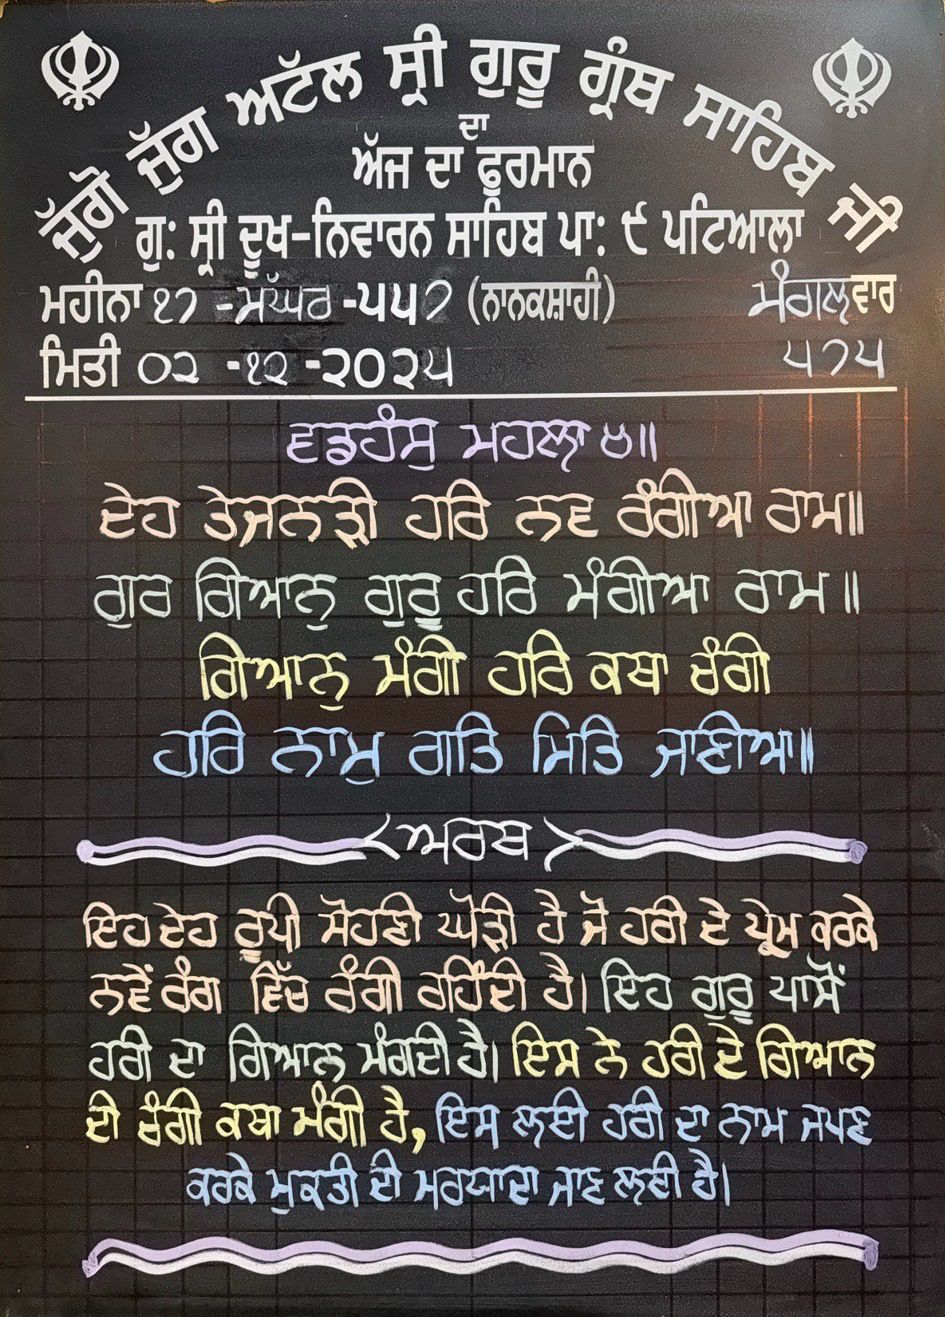 ਜੁੱਗੋ ਜੁੱਗ ਅਟੱਲ ਸ੍ਰੀ ਗੁਰੂ ਗ੍ਰੰਥ ਸਾਹਿਬ ਜੀ
ਦਾ
ਅੱਜ ਦਾ ਫੁਰਮਾਨ
ਗੁ: ਸ੍ਰੀ ਦੂਖ-ਨਿਵਾਰਨ ਸਾਹਿਬ ਪਾ: ੯ ਪਟਿਆਲਾ
ਮਹੀਨਾ ੧੭ -ਮੱਘਰ -੫੫੭ (ਨਾਨਕਸ਼ਾਹੀ) ਮੰਗਲਵਾਰ
ਮਿਤੀ ੦੨ -੧੨ -੨੦੨੫ ੫੭੫
ਵਡਹੰਸੁ ਮਹਲਾ ੪॥
ਦੇਹ ਤੇਜਨੜੀ ਹਰਿ ਨਵ ਰੰਗੀਆ ਰਾਮ॥
ਗੁਰ ਗਿਆਨੁ ਗੁਰੂ ਹਰਿ ਮੰਗੀਆ ਰਾਮ॥
ਗਿਆਨੁ ਮੰਗੀ ਹਰਿ ਕਥਾ ਚੰਗੀ
ਹਰਿ ਨਾਮੁ ਗਤਿ ਮਿਤਿ ਜਾਣੀਆ॥
ਅਰਥ
ਇਹ ਦੇਹ ਰੂਪੀ ਸੋਹਣੀ ਘੋੜੀ ਹੈ ਜੋ ਹਰੀ ਦੇ ਪ੍ਰੇਮ ਕਰਕੇ
ਨਵੇਂ ਰੰਗ ਵਿੱਚ ਰੰਗੀ ਰਹਿੰਦੀ ਹੈ। ਇਹ ਗੁਰੂ ਪਾਸੋਂ
ਹਰੀ ਦਾ ਗਿਆਨ ਮੰਗਦੀ ਹੈ। ਇਸ ਨੇ ਹਰੀ ਦੇ ਗਿਆਨ
ਦੀ ਚੰਗੀ ਕਥਾ ਮੰਗੀ ਹੈ, ਇਸ ਲਈ ਹਰੀ ਦਾ ਨਾਮ ਜਪਣ
ਕਰਕੇ ਮੁਕਤੀ ਦੀ ਮਰਯਾਦਾ ਜਾਣ ਲਈ ਹੈ।